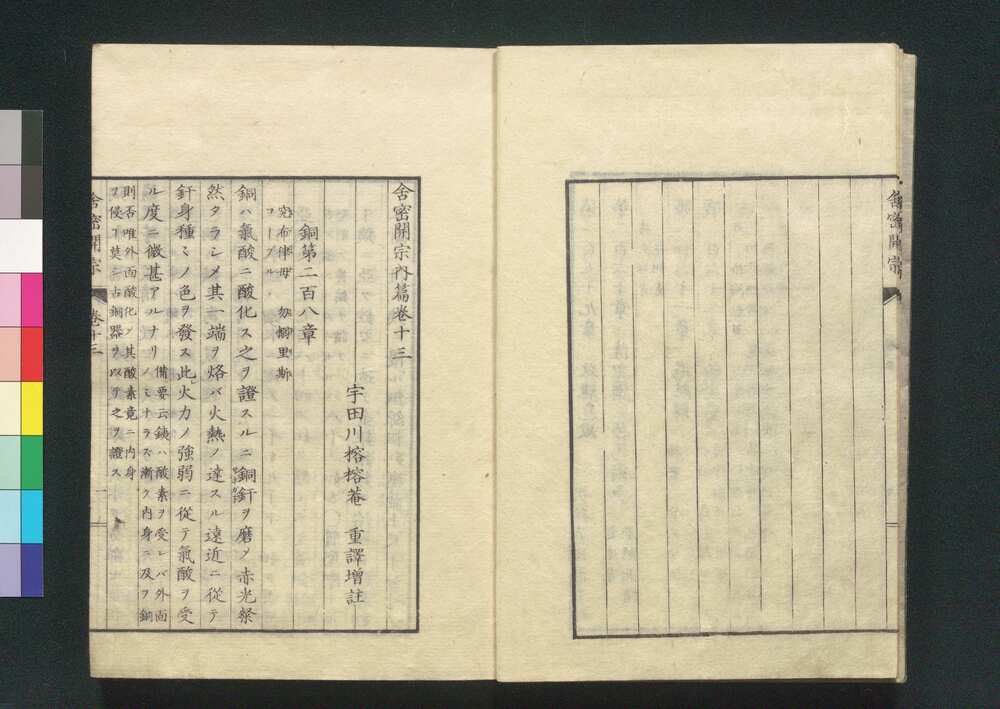 舎密開宗
舎密開宗内篇巻十三
宇田川榕榕菴　重譯增註
銅第二百八章
銅ハ氣酸ニ酸化ス之ヲ證スルニ銅釬ヲ磨メ赤光粲
然タラシメ其一端ヲ烙バ火熱ノ達スル遠近ニ從テ
釬身種ミノ色ヲ發ス此火力ノ強弱ニ從テ氣酸ヲ受
ル度ニ微甚アルナリ
備要云銕ハ酸素ヲ受レバ外面
ノミナラス漸ク内身ニ及フ銅
則否唯外面酸化メ其酸素竟ニ内身
ヲ侵コ莫シ古銅器ヲ以テ之ヲ證ス
舎密開宗
巻十三
一